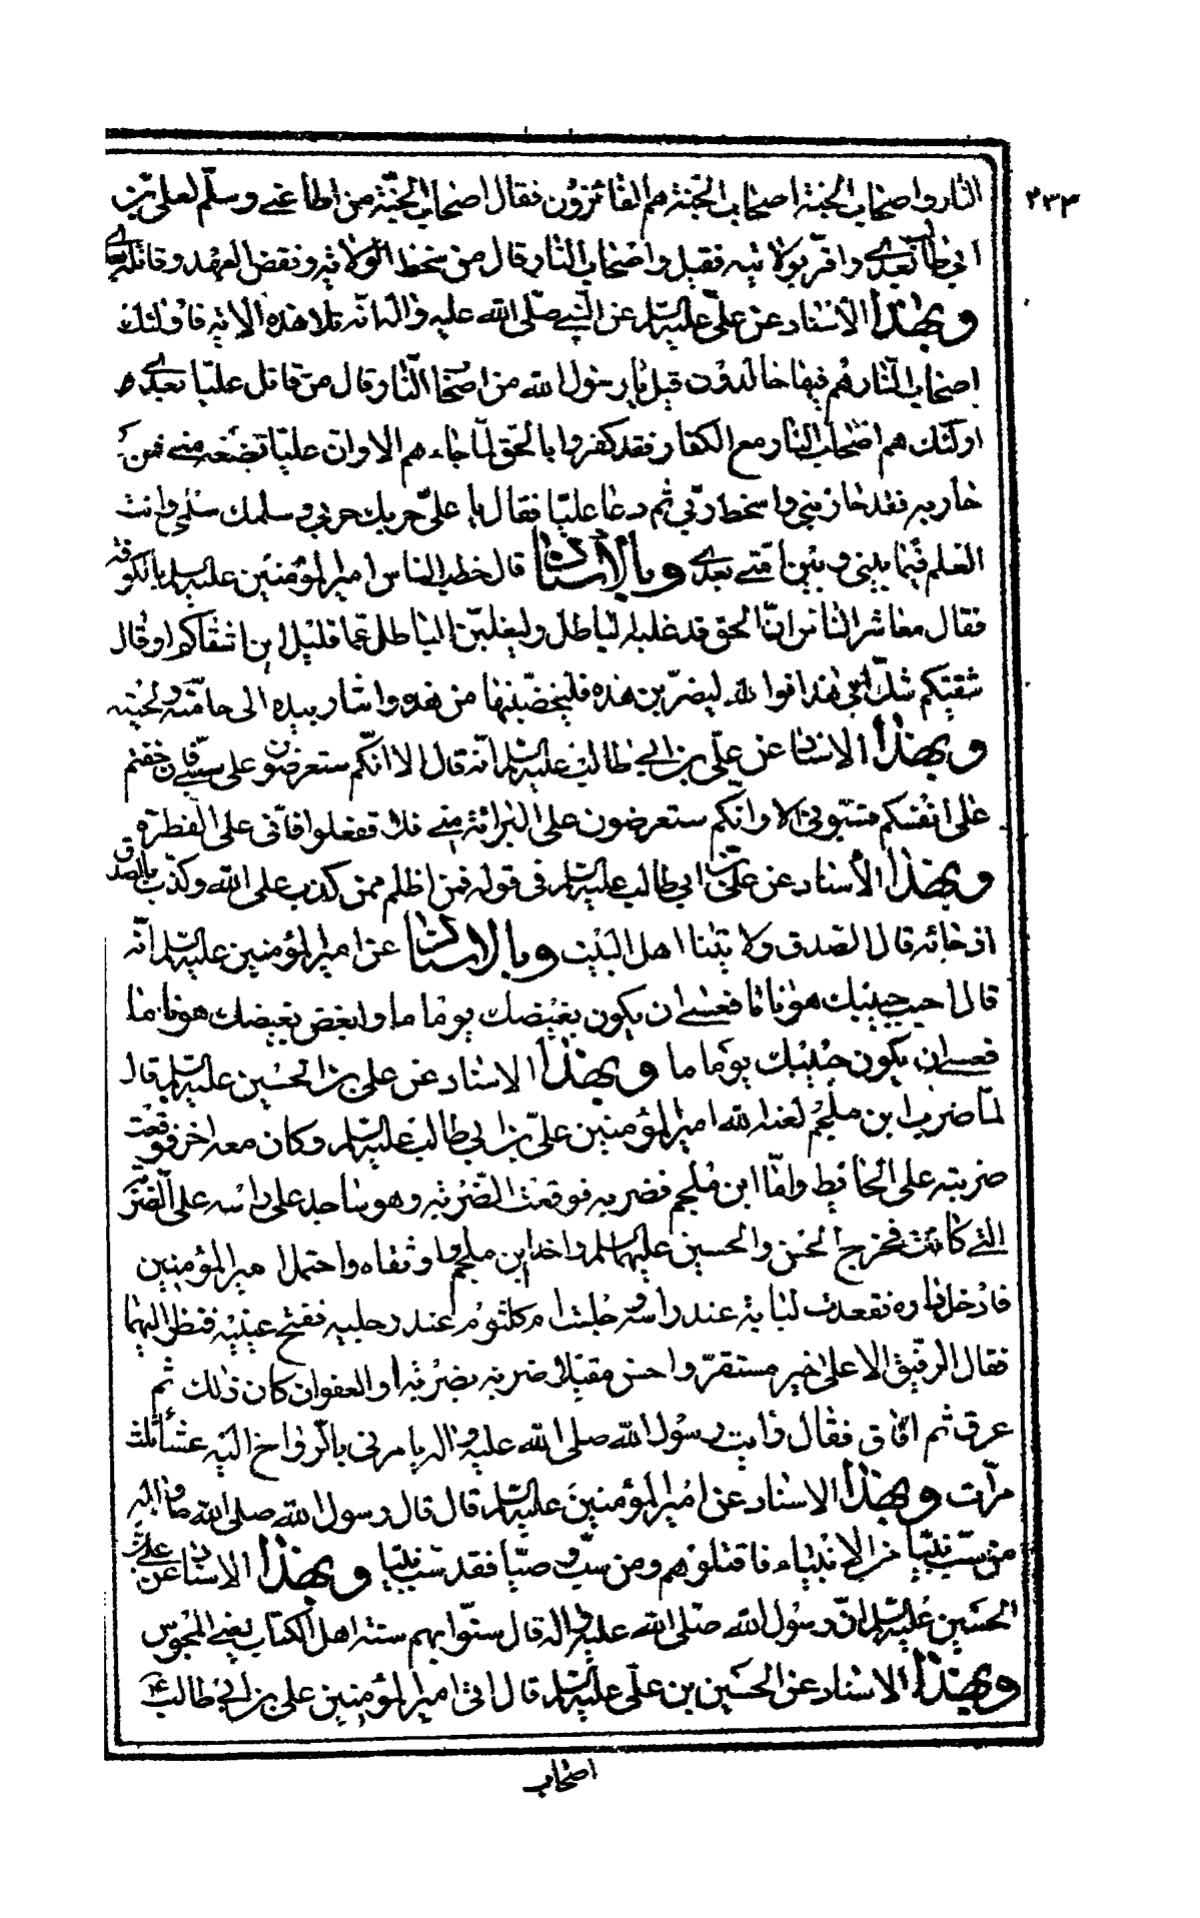 ٢٣٣
النار واصحاب الجنة اصحاب الجنة هم الفائزون فقال اصحاب الجنة من اطاعني وسلم لعلي بن
ابي طالب بعدي واقر بولايته فقيل واصحاب النار قال من سخط الولاية ونقض العهد وقاتله بعدي
وبهذا الاسناد عن علي عليه السلم عن النبي صلى الله عليه واله انه تلا هذه الاية فاولئك
اصحاب النار هم فيها خالدون قيل يا رسول الله من اصحاب النار قال من قاتل عليا بعدي
اولئك هم اصحاب النار مع الكفار فقد كفروا بالحق لما جاءهم الا وان عليا بضعة مني فمن
حاربه فقد حاربني واسخط ربي ثم دعا عليا فقال يا علي حربك حربي وسلمك سلمي وانت
العلم فيما بيني وبين امتي بعدي وبالاسناد قال خطب الناس امير المؤمنين عليه السلم بالكوفة
فقال معاشر الناس ان الحق قد غلبه الباطل وليغلبن الباطل عما قليل اين اشقاكم او قال
شقيكم شك ابي هذا فوالله ليضربن هذه فليخضبنها من هذه واشار بيده الى هامته ولحيته
وبهذا الاسناد عن علي بن ابي طالب عليه السلم انه قال الا انكم ستعرضون على سبي فان خفتم
على انفسكم فسبوني الا وانكم ستعرضون على البرائة مني فلا تفعلوا فاني على الفطرة
وبهذا الاسناد عن علي بن ابي طالب عليه السلم في قوله فمن اظلم ممن كذب على الله وكذب بالصدق
اذ جائه قال الصدق ولايتنا اهل البيت وبالاسناد عن امير المؤمنين عليه السلم انه
قال احبب حبيبك هونا ما فعسى ان يكون بغيضك يوما ما وابغض بغيضك هونا ما
فعسى ان يكون حبيبك يوما ما وبهذا الاسناد عن علي بن الحسين عليه السلم قال
لما ضرب ابن ملجم لعنه الله امير المؤمنين علي بن ابي طالب عليه السلم وكان معه اخر فوقعت
ضربته على الحائط واما ابن ملجم فضربه فوقعت الضربة وهو ساجد على راسه على الضربة
التي كانت فخرج الحسن والحسين عليهما السلم واخذا ابن ملجم واوثقاه واحتمل امير المؤمنين
فادخل داره فقعدت لبابة عند راسه وجلست ام كلثوم عند رجليه ففتح عينيه فنظر اليهما
فقال الرفيق الاعلى خير مستقر واحسن مقيلا ضربة بضربة او العفو ان كان ذلك ثم
عرق ثم افاق فقال رايت رسول الله صلى الله عليه واله يامرني بالرواح اليه عشاء ثلث
مرات وبهذا الاسناد عن امير المؤمنين عليه السلم قال قال رسول الله صلى الله عليه واله
من سب نبيا من الانبياء فاقتلوهم ومن سب وصيا فقد سب نبيا وبهذا الاسناد عن علي بن
الحسين عليه السلم ان رسول الله صلى الله عليه واله قال سنوا بهم سنة اهل الكتاب يعني المجوس
وبهذا الاسناد عن الحسين بن علي عليه السلم قال اتى امير المؤمنين علي بن ابي طالب ع
اصحاب